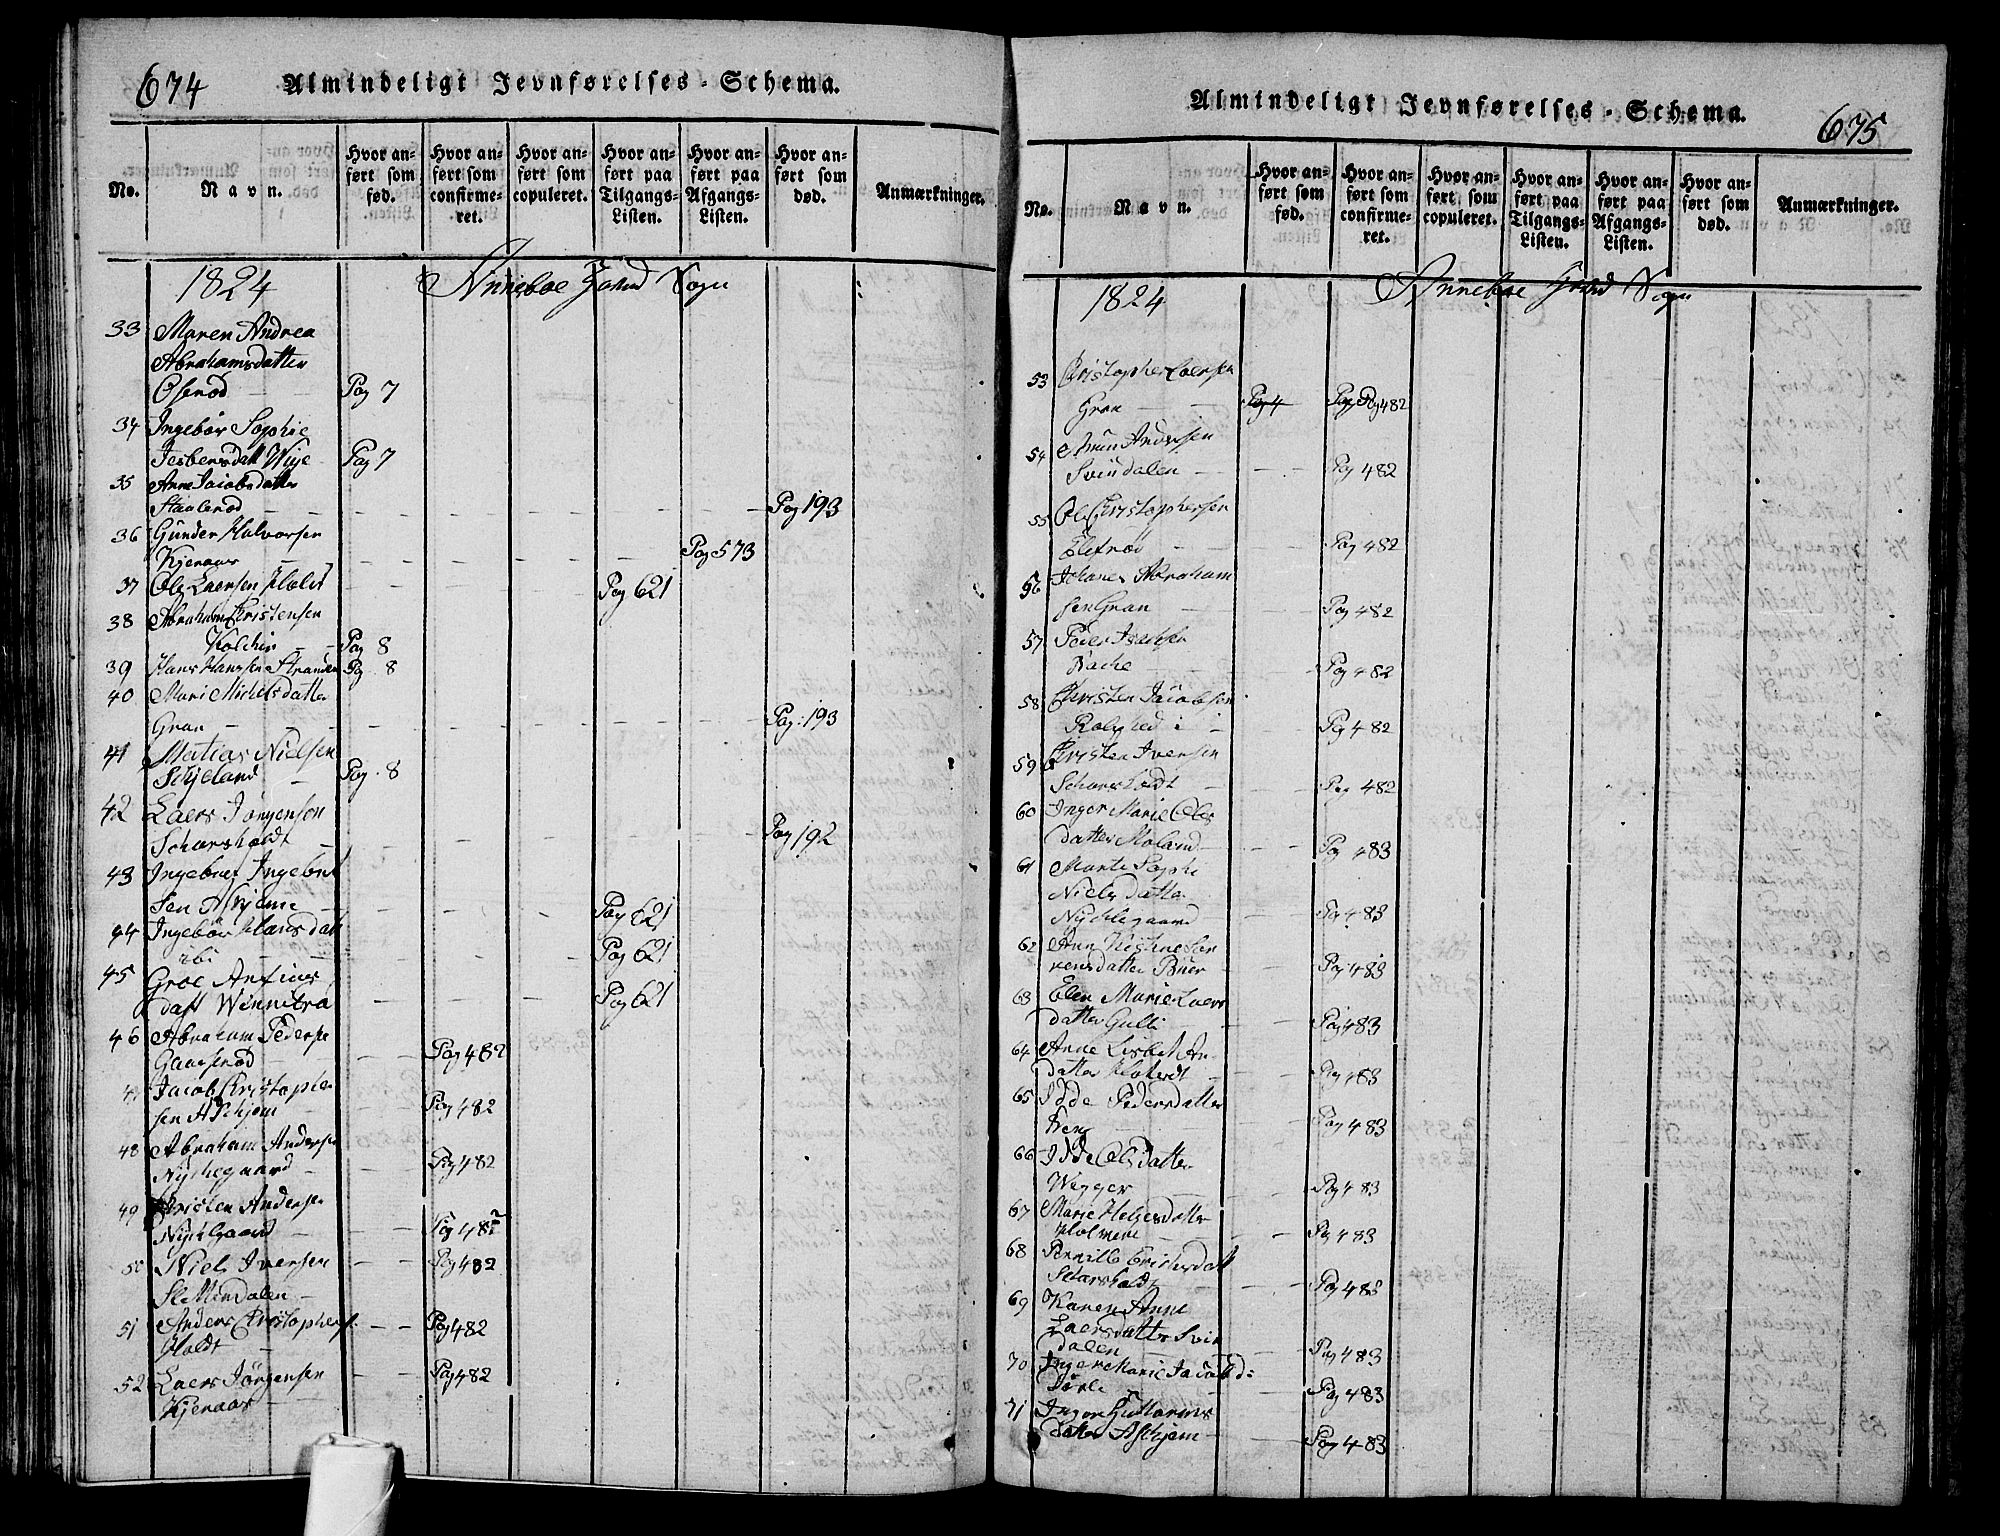 674
Almindeligt Jevnførelses-Schema.
No.
Navn.
Hvor anført som fød.
Hvor anført som confirmeret.
Hvor anført som copuleret.
Hvor anført paa Tilgangs-Listen.
Hvor anført paa Afgangs-Listen.
Hvor anført som død.
Anmærkninger.
1824 Sogn
33 Maren Andrea
Abrahamsdatter
Oserød Pag 7
34 Ingebor Sophie
Pag 7
35 Anne Jacobsdatter
Pag 193
36 Gunder Halvorsen
Kjenaas Pag 573
37 Ole Laersen Pag 621
38 Abraham Cristensen
Pag 8
39 Hans Hansen Stranden Pag 8
40 Mari Michelsdatter
Gran Pag. 193
41 Matias Nielsen
Schjeland Pag. 8
42 Laers Jörgenson
Schorsholdt Pag 192
43 Ingebret Ingebret
sen Pag 621
44 Ingebor Hansdatt
ibi Pag 621
45 Groe
datt Pag 621
46 Abraham Pederse
Pag 482
47 Jacob Cristopher
sen Askjem Pag 482
48 Abraham Anderse
Nychegaard Pag 482
49 Cristen Anderse
Pag 482
50 Niels Iversen Pag 482
51 Anders Christophers
Holdt Pag 482
52 Laers Jörgensen Pag 482
Kjenaas
Almindeligt Jevnførelses-Schema.
675
No.
Navn.
Hvor anført som fød.
Hvor anført som confirmeret.
Hvor anført som copuleret.
Hvor anført paa Tilgangs-Listen.
Hvor anført paa Afgangs-Listen.
Hvor anført som død.
Anmærkninger.
1824 Sogn
53 Cristopher Laersen
Gran Pag 4 Pag Pag 482
54 Andersen
Svindalen Pag 482
55 Ole Christophersen
Pag 482
56 Johanes Abraham
sen Gran Pag 482
57 Peder Isachsen
Bache Pag 482
58 Christen Jacobsen
Pag 482
59 Cristen Iversen
Schorsholdt Pag 482
60 Inger Marie Ols
datter Moland Pag 483
61 Marte Sophi
Niels datter
Nychlegaard Pag 483
62 Ann
rensdatter Pag 483
63 Elen Marie Laers
datter Gulli Pag 483
64 Anne Lisbet An
datter Pag 483
65 Idde Pedersdatter
Pag 483
66 Idde Olsdatter
Wegger Pag 483
67 Marie Helgesdatter
Holmene Pag 483
68 Pernille Erichsdatt
Pag 483
69 Karen Anne
Laersdatter Svin
dalen Pag 483
70 Inger Marie Jacobsd:
Pag 483
71 Inger
datter Askjem Pag 483